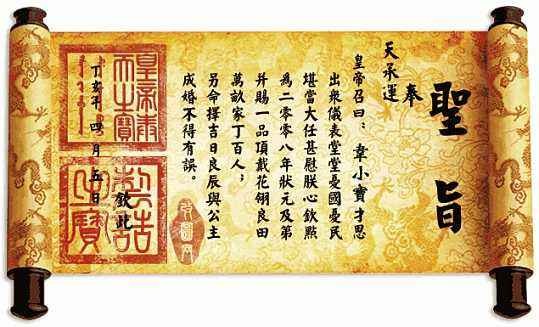 聖旨
奉
天承運
皇帝召曰：韋小寶才思
出衆儀表堂堂憂國憂民
堪當大任甚慰朕心欽點
為二零零八年狀元及第
并賜一品頂戴花翎良田
萬畝家丁百人；
另命擇吉日良辰與公主
成婚不得有誤。
欽此
丁亥年
月五日
皇帝奉
天之寶
制誥
之寶